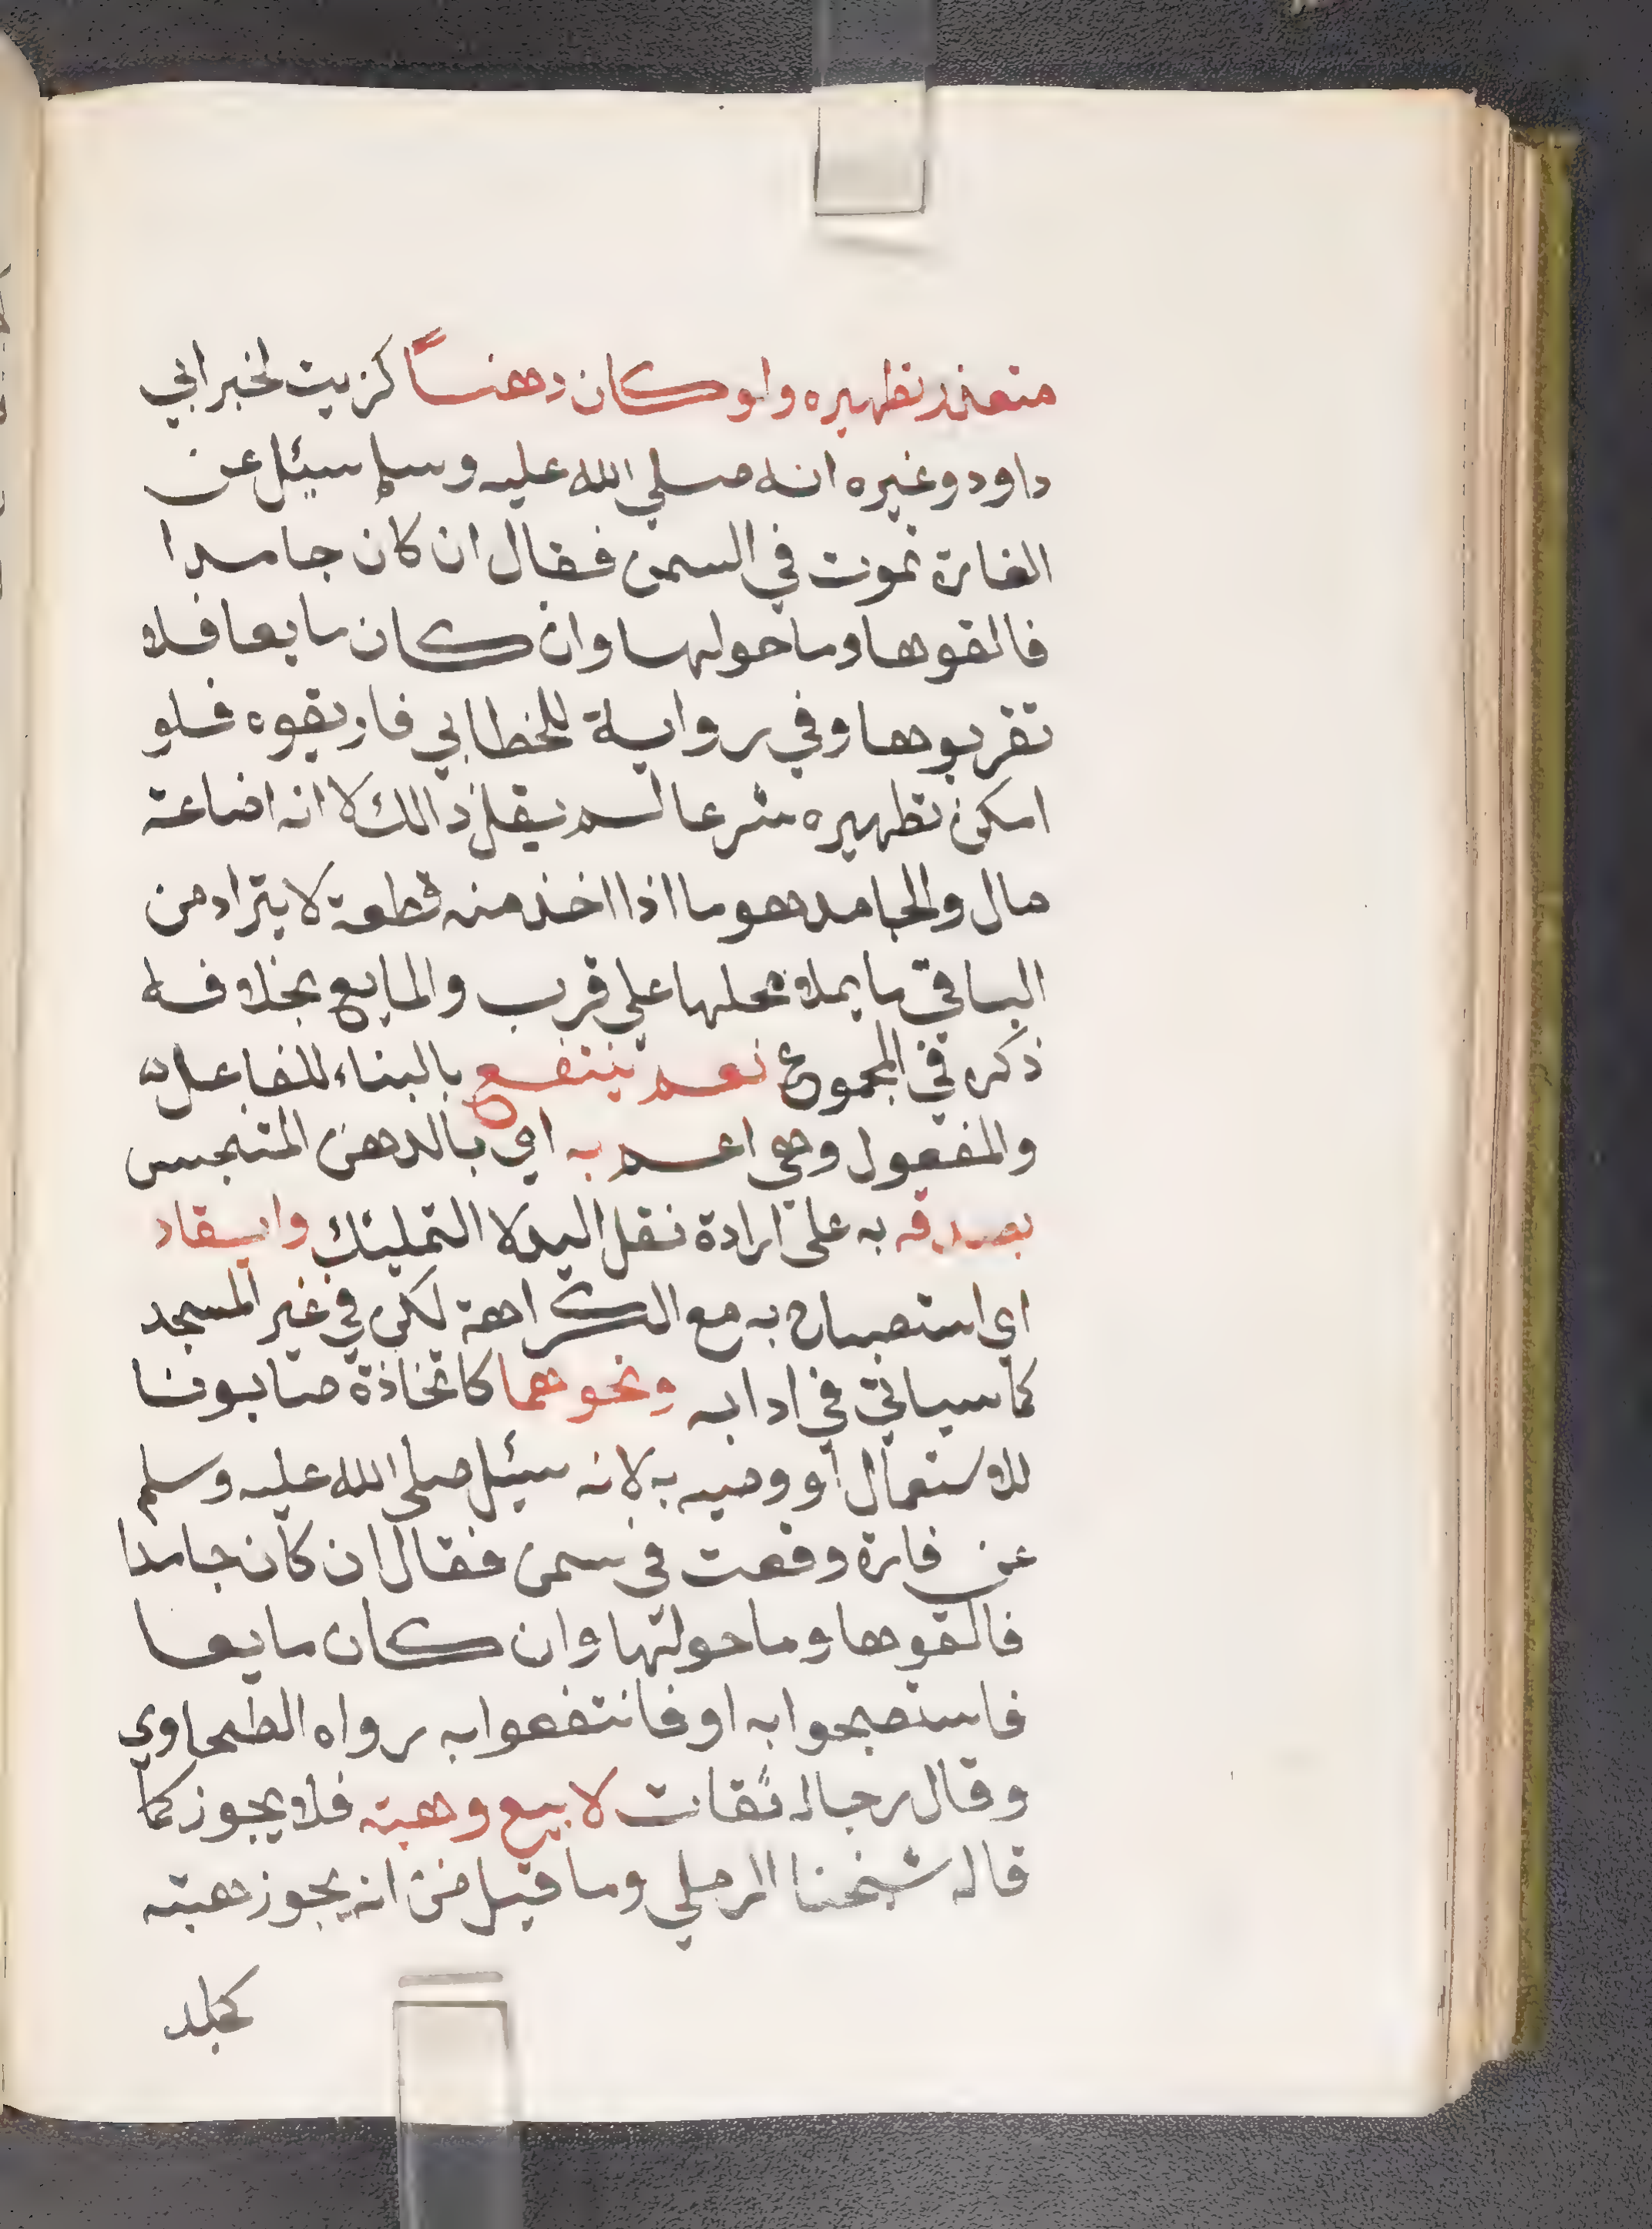 متعذر تطهيره ولو كان دهنـاً كزيت لخبر ابي
داود وغيره انه صلي الله عليه وسلم سيئل عن
الفارة تموت في السمن فقال ان كان جامدا
فالقوها وما حولها وان كان مايعا فلا
تقربوها وفي رواية للخطابي فاريقوه فلو
امكن تطهيره شرعا لم يقل ذالك لانه اضاعة
مال والجامد هو ما اذا اخذ منه قطعة لا يتراد من
الباقي ما يملا محلها علي قرب والمايع بخلافه
ذكره في المجموع نعم ينتفع بالبناء للفاعل
والمفعول وهي اعم به اي بالدهن المتنجس
بصدقه به على ارادة نقل اليد لا التمليك وايقاد
اي استصباح به مع الكراهة لكن في غير المسجد
كما سياتي في ادابه ونحوهما كاتخاذه صابونا
للاستعمال او وصيه به لانه سيئل صلى الله عليه وسلم
عن فارة وقعت في سمن فقال ان كان جامدا
فالقوها وما حولتها وان كان مايعا
فاستصبحوا به او فانتفعوا به رواه الطحاوي
وقال رجاله ثقات لا بيع وهبته فلا يجوز كما
قاله شيخنا الرملي وما قيل من انه يجوز هبته
كجلد